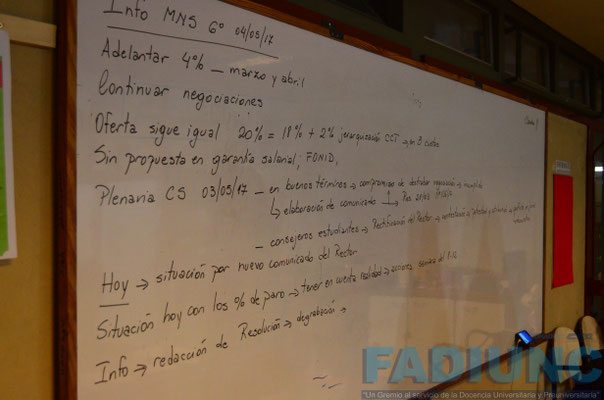 Info MNS 6° 04/05/17
Adelantar 4% — marzo y abril
Continuar negociaciones
Oferta sigue igual 20% = 18% + 2% jerarquización CCT → en 3 cuotas
Sin propuesta en garantía salarial, FONID,
Plenaria CS 03/05/17 — en buenos términos → compromiso de
↳ elaboración de comunicado
— consejeros estudiantes → Rectificación del Rector →
Hoy → situación por nuevo comunicado del Rector
Situación hoy con los % de paro → tener en cuenta realidad → acciones semana del
Info → redacción de Resolución → degrabación →
FADIUNC
"Un Gremio al servicio de la Docencia Universitaria y Preuniversitaria"